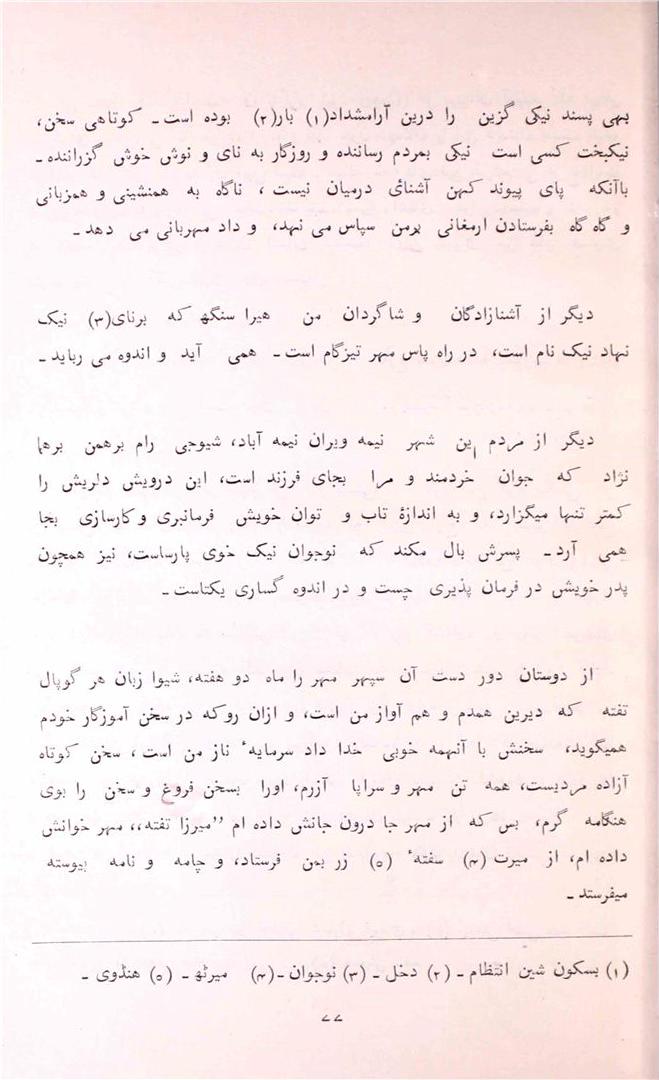 بہی پسند نیکی گزین را درین آرامشداد(۱) بار(۲) بوده است۔ کوتاهی سخن،
نیکبخت کسی است نیکی بمردم رساننده و روزگار به نای و نوش خوش گزراننده۔
باآنکه پای پیوند کہن آشنائی درمیان نیست، ناگاه به همنشینی و همزبانی
و گاه گاه بفرستادن ارمغانی برمن سپاس می نہد، و داد مہربانی می دهد۔
دیگر از آشنازادگان و شاگردان من هیرا سنگھ که برنای(۳) نیک
نہاد نیک نام است، در راه پاس مہر تیزگام است۔ همی آید و اندوه می رباید۔
دیگر از مردم این شہر نیمه ویران نیمه آباد، شیوجی رام برهمن برهما
نژاد که جوان خردمند و مرا بجای فرزند است، این درویش دلریش را
کمتر تنہا میگزارد، و به اندازۀ تاب و توان خویش فرمانبری و کارسازی بجا
همی آرد۔ پسرش بال مکند که نوجوان نیک خوی پارساست، نیز همچون
پدر خویش در فرمان پذیری چست و در اندوه گساری یکتاست۔
از دوستان دور دست آن سپہر مہر را ماه دو هفته، شیوا زبان هر گوپال
تفته که دیرین همدم و هم آواز من است، و ازان روکه در سخن آموزگار خودم
همیگوید، سخنش با آنہمه خوبی خدا داد سرمایۀ ناز من است، سخن کوتاه
آزاده مردیست، همه تن مہر و سراپا آزرم، اورا بسخن فروغ و سخن را بوی
هنگامه گرم، بس که از مہر جا درون جانش داده ام ’’میرزا تفته،، مہر خوانش
داده ام، از میرت (۴) سفتۀ (۵) زر بمن فرستاد، و چامه و نامه پیوسته
میفرستد۔
(۱) بسکون شین انتظام۔ (۲) دخل۔ (۳) نوجوان۔ (۴) میرٹھ۔ (۵) هنڈوی۔
۷۷